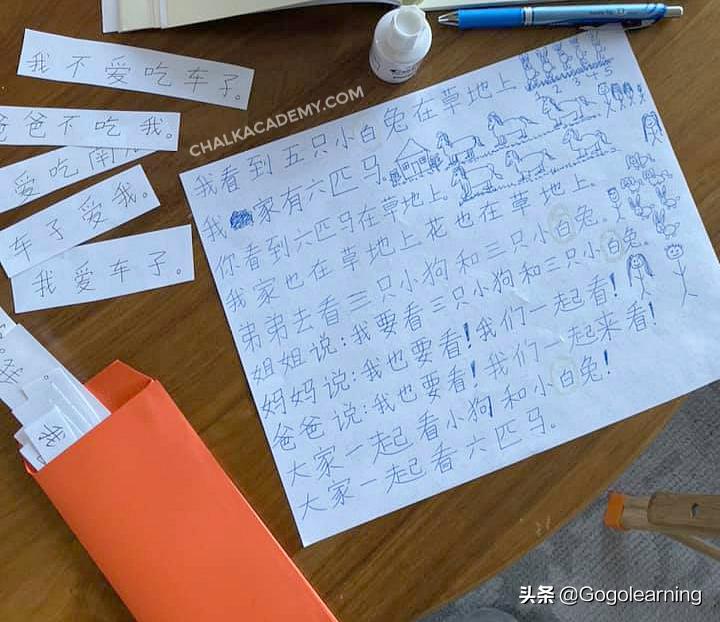 我不爱吃车子。
爸不吃我。
爱吃南
车子爱我。
我爱车子。
我
CHALKACADEMY.COM
我看到五只小白兔在草地上
1 2 3 4 5
我家有六匹马。
你看到六匹马在草地上。
我家也在草地上花也在草地上。
弟弟去看三只小狗和三只小白兔。
姐姐说:我要看三只小狗和三只小白兔。
妈妈说:我也要看!我们一起看!
爸爸说:我也要看!我们一起来看!
大家一起看小狗和小白兔!
大家一起看六匹马。
头条 @Gogolearning